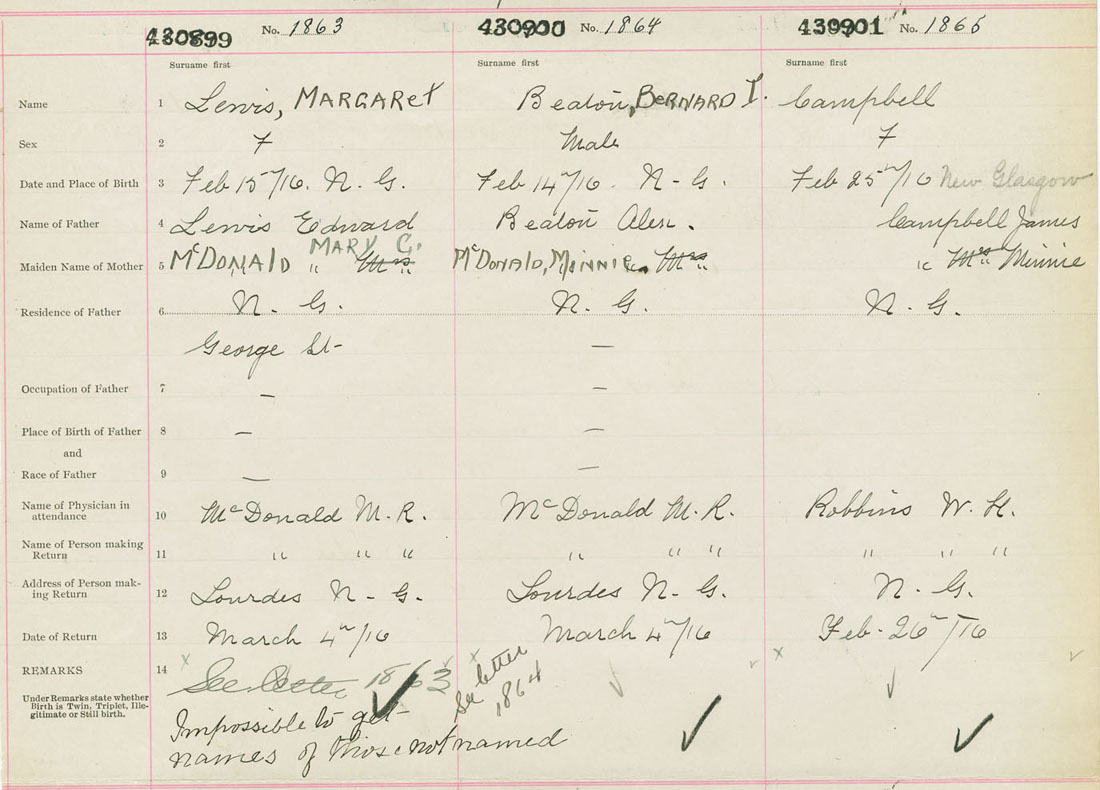 430899 No. 1863 430900 No. 1864 430901 No. 1865
Surname first Surname first Surname first
Name 1 Lewis, MARGAReT Beaton, BeRNARD I. Campbell
Sex 2 F Male F
Date and Place of Birth 3 Feb 15"/16. N. G. Feb 14"/16. N-G. Feb 25"/16 New Glasgow
Name of Father 4 Lewis Edward Beaton Alex. Campbell James
MARY C.
Maiden Name of Mother 5 McDONALD " Mrs " McDONALD, MINNIE " Mrs " " Mrs " Minnie
Residence of Father 6 N. G. N. G. N. G.
George St- —
Occupation of Father 7 — —
Place of Birth of Father 8 — —
and
Race of Father 9 — —
Name of Physician in
attendance 10 McDonald M. R. McDonald M. R. Robbins W. H.
Name of Person making
Return 11 " " " " " " " " "
Address of Person mak-
ing Return 12 Lourdes N-G. Lourdes N. G. N-G.
Date of Return 13 March 4"/16 March 4"/16 Feb-26"/16
REMARKS 14 x See letter 1863 x See letter x
1864
Under Remarks state whether
Birth is Twin, Triplet, Ille-
gitimate or Still birth.
Impossible to get-
names of those not named